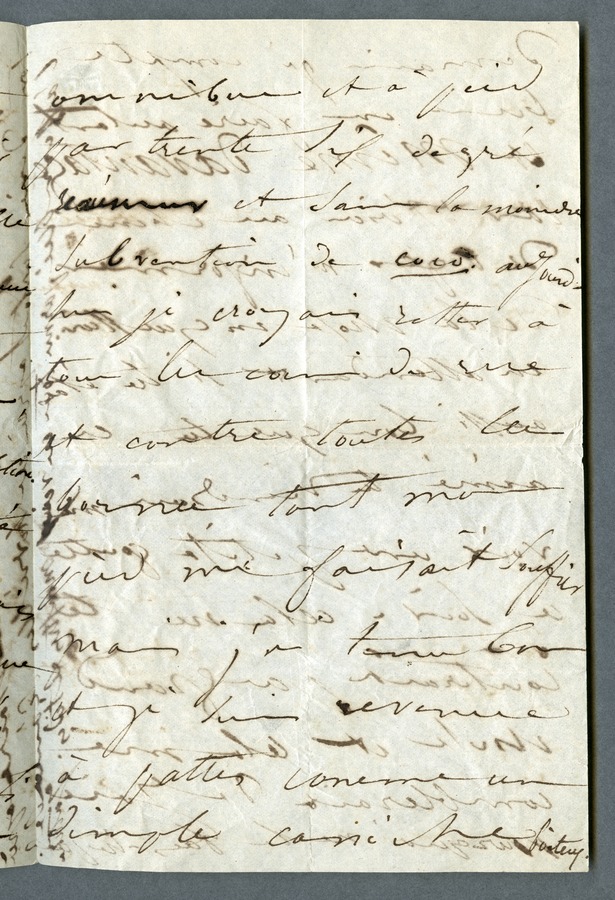 omnibus et à pied
par trente six degrés
réaumur et sans la moindre
subvention de coco. aujourd-
hui je croyais rester à
tous les coins de rue
et contre toutes les
bornes tant mon
pied me faisait souffrir
mais j'ai tenu bon
et je suis revenue
à pattes comme un
simple caniche